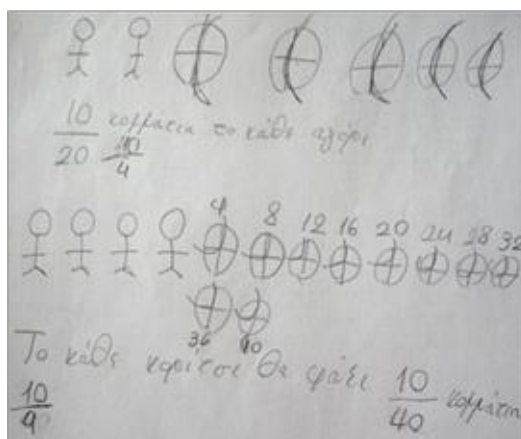 10
20 κομμάτια το κάθε αγόρι
10
4
4 8 12 16 20 24 28 32
36 40
Το κάθε κορίτσι θα φάει 10
40 κομμάτια
10
4